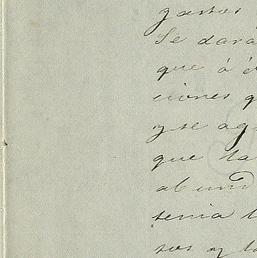 gastos
Se dará
que á é
ciones q
y se ag
que la
abund
tenia l
sos y lo